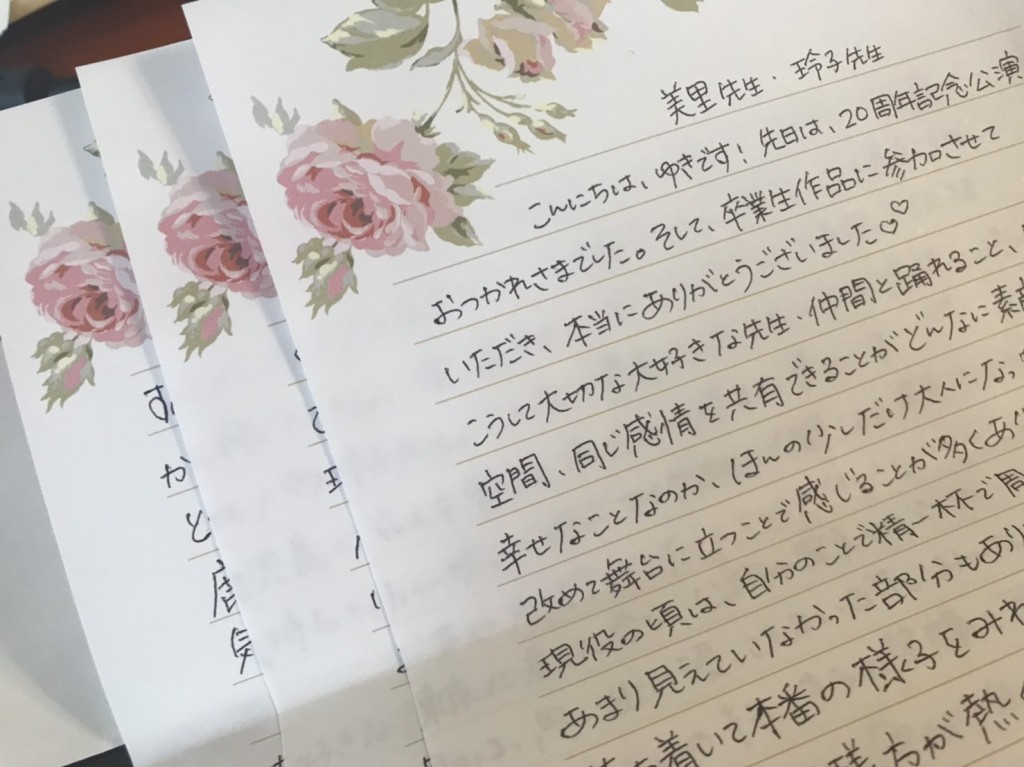 美里先生・玲子先生
こんにちは、ゆきです！先日は、20周年記念公演
おつかれさまでした。そして、卒業生作品に参加させて
いただき、本当にありがとうございました♡♡
こうして大切な大好きな先生・仲間と踊れること、
空間、同じ感情を共有できることがどんなに素
幸せなことなのか、ほんの少しだけ大人になっ
改めて舞台に立つことで感じることが多くあり
現役の頃は、自分のことで精一杯で周
あまり見えていなかった部分もあり
ち着いて本番の様子をみれ
様ちが熱
か
と